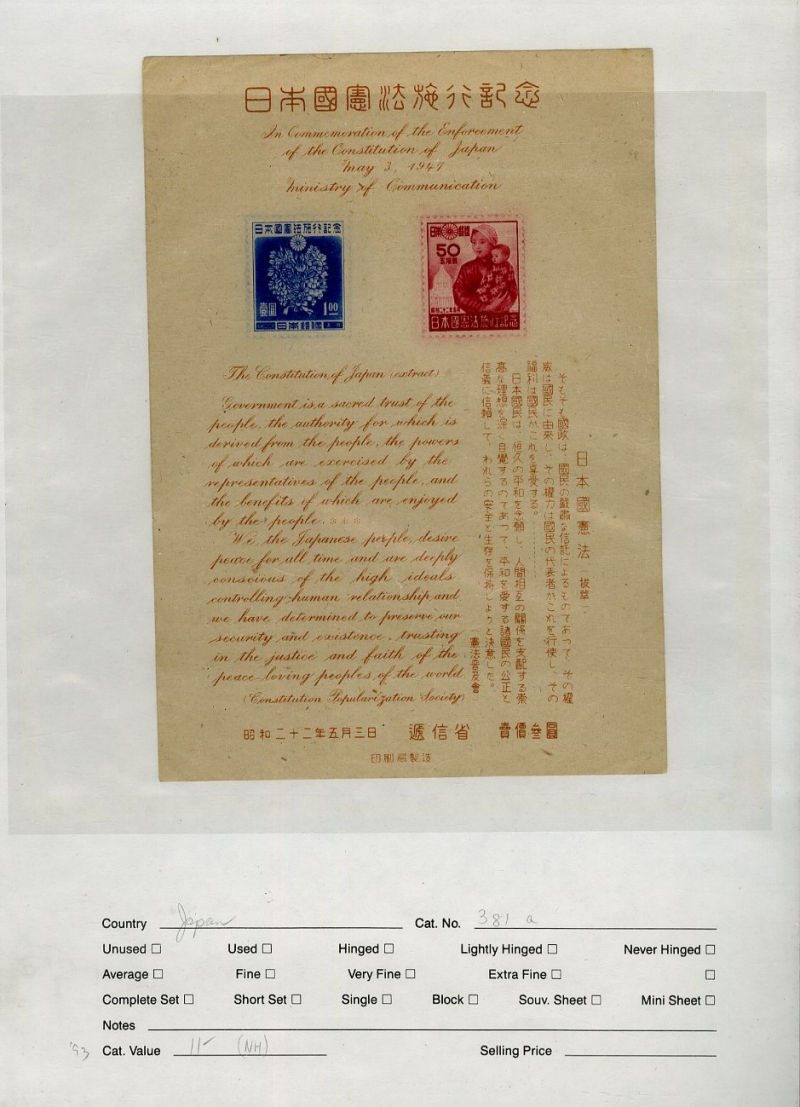 日本國憲法施行記念
In Commemoration of the Enforcement
of the Constitution of Japan
May 3, 1947
Ministry of Communication
日本國憲法施行記念
壹圓
1.00
日本郵便
日本郵便
50
五拾錢
昭和二十二年五月
日本國憲法施行記念
The Constitution of Japan (extract)
Government is a sacred trust of the
people, the authority for which is
derived from the people, the powers
of which are exercised by the
representatives of the people, and
the benefits of which are enjoyed
by the people. ***
We, the Japanese people, desire
peace for all time and are deeply
conscious of the high ideals
controlling human relationship and
we have determined to preserve our
security and existence, trusting
in the justice and faith of the
peace-loving peoples of the world.
(Constitution Popularization Society)
日本國憲法(抜萃)
そもそも國政は、國民の嚴肅な信託によるものであつて、その權
威は國民に由來し、その權力は國民の代表者がこれを行使し、その
福利は國民がこれを享受する。………
日本國民は、恒久の平和を念願し、人間相互の關係を支配する崇
高な理想を深く自覺するのであつて、平和を愛する諸國民の公正と
信義に信頼して、われらの安全と生存を保持しようと決意した。
(憲法普及會)
昭和二十二年五月三日 遞信省 賣價參圓
印刷局製造
Country Japan Cat. No. 381 a
Unused □ Used □ Hinged □ Lightly Hinged □ Never Hinged □
Average □ Fine □ Very Fine □ Extra Fine □ □
Complete Set □ Short Set □ Single □ Block □ Souv. Sheet □ Mini Sheet □
Notes
'93 Cat. Value 11- (NH) Selling Price